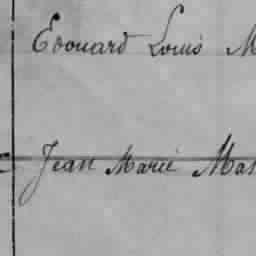 Edouard Louis M
Jean Marie Ma